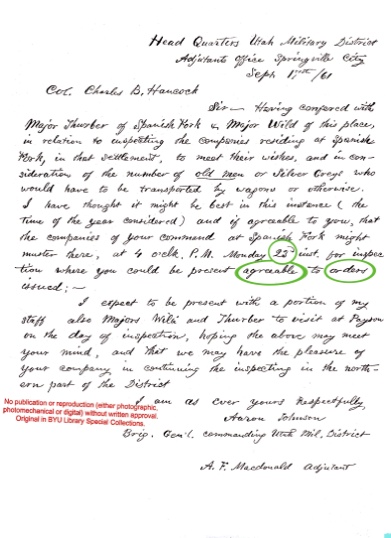 Head Quarters Utah Military District
Adjutants Office Springville City
Sept /61
Col. Charles B. Hancock
Sir — Having confered with
Major Thurber of Spanish Fork & Major Wild of this place,
in relation to inspecting the companies residing at Spanish
Fork, in that settlement, to meet their wishes, and in con-
sideration of the number of old men or Silver Greys who
would have to be transported by wagons or otherwise.
I have thought it might be best in this instance (the
time of the year considered) and if agreeable to you, that
the companies of your command at Spanish Fork might
muster there, at 4 o'clk, P.M. Monday inst. for inspec
tion where you could be present agreeable to orders
issued; —
I expect to be present with a portion of my
staff also Majors and Thurber to visit at Payson
on the day of inspection, hoping the above may meet
your mind, and that we may have the pleasure of
your company in continuing the inspecting in the north-
ern part of the District
I am as ever yours Respectfully,
Aaron Johnson
Brig. Gen'l. commanding Utah Mil. District
A. F. Macdonald Adjutant
No publication or reproduction (either photographic,
photomechanical or digital) without written approval.
Original in BYU Library Special Collections.